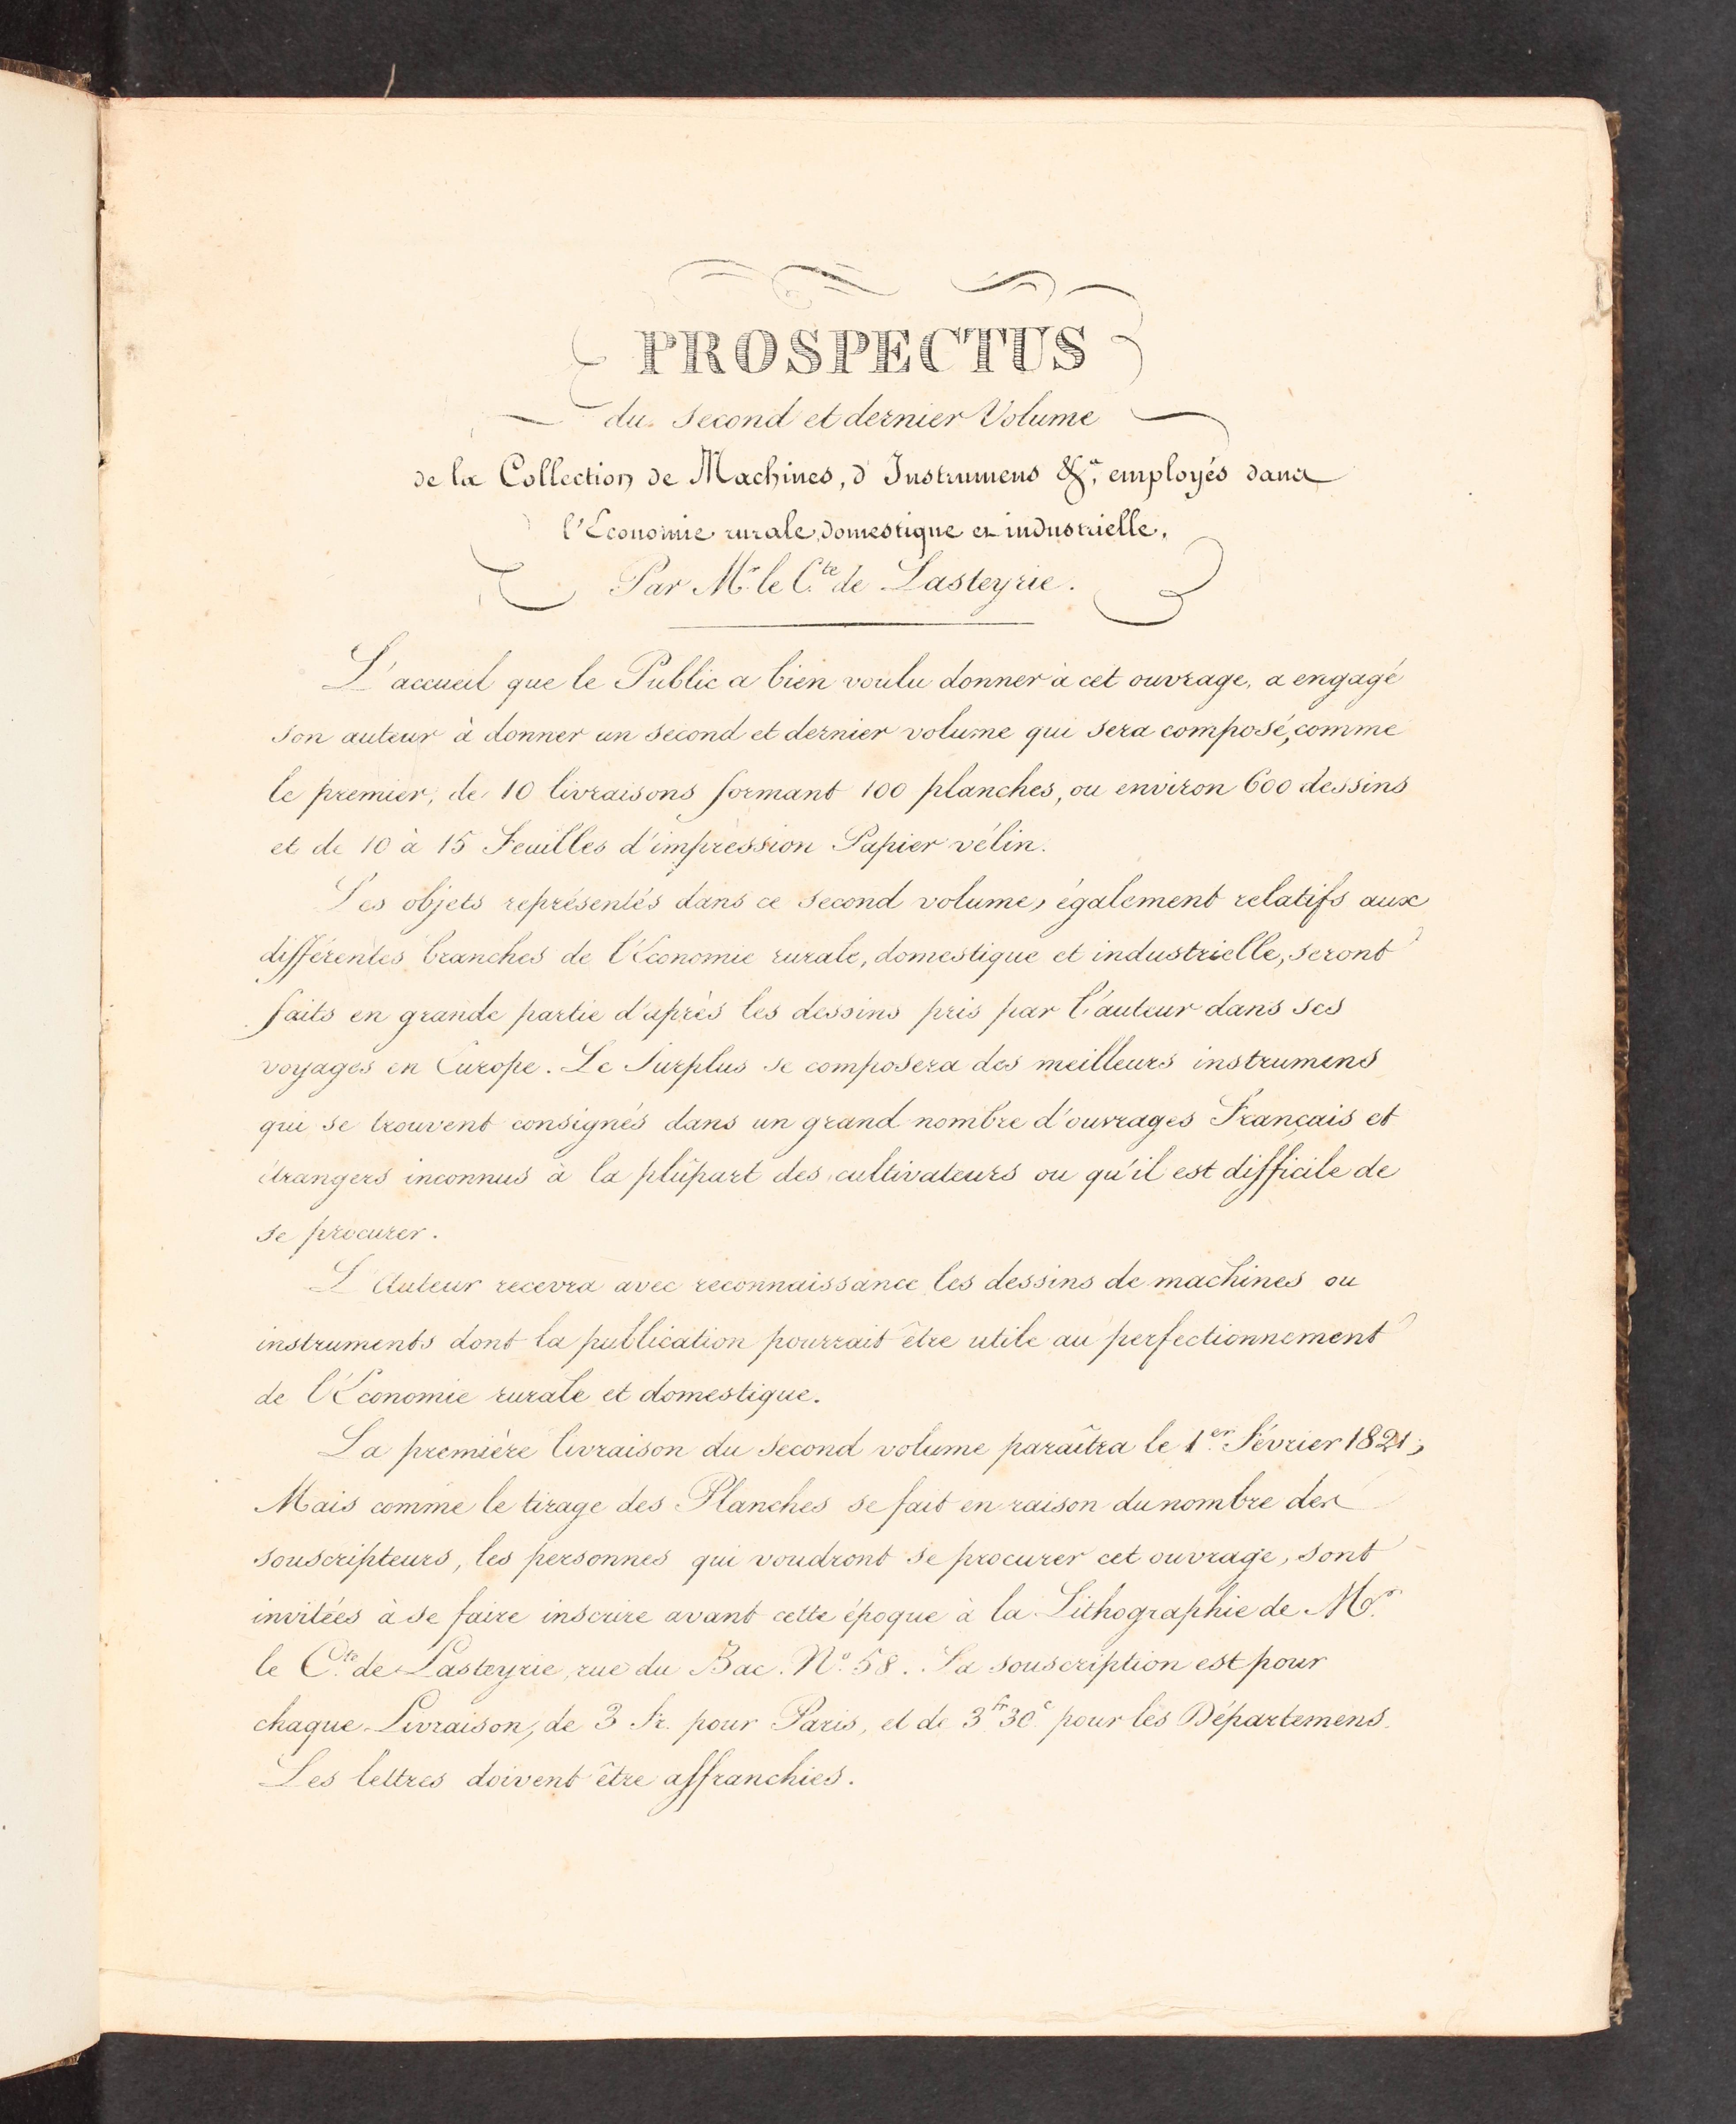 PROSPECTUS
du Second et dernier Volume
de la Collection de Machines, d'Instrumens &.a employés dans
l'Économie rurale, domestique et industrielle,
Par Mr. le C.te de Lasteyrie.
L'accueil que le Public a bien voulu donner à cet ouvrage, a engagé
son auteur à donner un second et dernier volume qui sera composé, comme
le premier, de 10 livraisons formant 100 planches, ou environ 600 dessins
et de 10 à 15 Feuilles d'impression Papier vélin.
Les objets représentés dans ce second volume, également relatifs aux
différentes branches de l'Économie rurale, domestique et industrielle, seront
faits en grande partie d'après les dessins pris par l'auteur dans ses
voyages en Europe. Le Surplus se composera des meilleurs instrumens
qui se trouvent consignés dans un grand nombre d'ouvrages Français et
étrangers inconnus à la plûpart des cultivateurs ou qu'il est difficile de
se procurer.
L'Auteur recevra avec reconnaissance les dessins de machines ou
instruments dont la publication pourrait être utile au perfectionnement
de l'Économie rurale et domestique.
La première livraison du second volume paraîtra le 1.er Février 1821;
Mais comme le tirage des Planches se fait en raison du nombre des
souscripteurs, les personnes qui voudront se procurer cet ouvrage, sont
invitées à se faire inscrire avant cette époque à la Lithographie de Mr.
le C.te de Lasteyrie, rue du Bac. N.º 58. La souscription est pour
chaque Livraison, de 3 Fr. pour Paris, et de 3.fr 30.c pour les Départemens.
Les lettres doivent être affranchies.